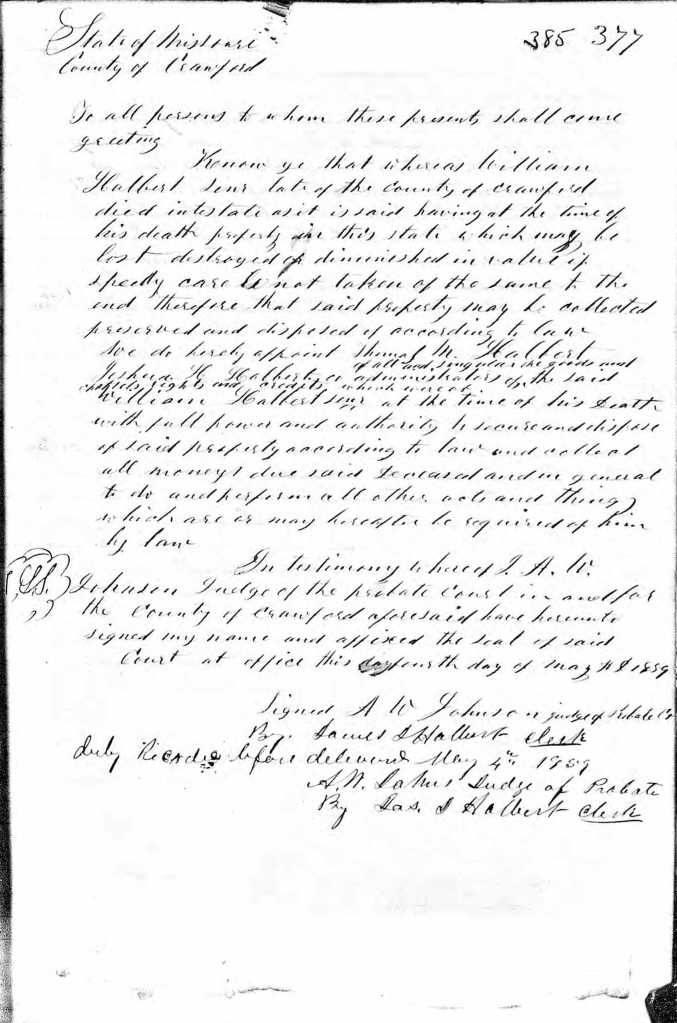 385 377
State of Missouri
County of Crawford
To all persons to whom these presents shall come
greeting
Know ye that whereas William
Halbert Senr late of the county of Crawford
died intestate as it is said having at the time of
his death property in this state which may be
lost destroyed or diminished in value if
speedy care be not taken of the same to the
end therefore that said property may be collected
preserved and disposed of according to law
We do hereby appoint Thomas M. Halbert
of all and singular the goods and
Joshua H Halbert administrators of the said
chattels, rights and credits which were of
William Halbert senr at the time of his Death
with full power and authority to secure and dispose
of said property according to law and collect
all moneys due said Deceased and in general
to do and perform all other acts and things
which are or may hereafter be required of him
by law
In testimony whereof I. A. W.
L.S. Johnson Judge of the probate Court in and for
the County of Crawford aforesaid have hereunto
signed my name and affixed the seal of said
Court at office this fourth day of May AD 1859
Signed A W Johnson judge of Probate Ct
By. James S Halbert clerk
duly Recorded before delivered May 4th 1859
A. W. Johns Judge of Probate
By Jas. S Halbert Clerk